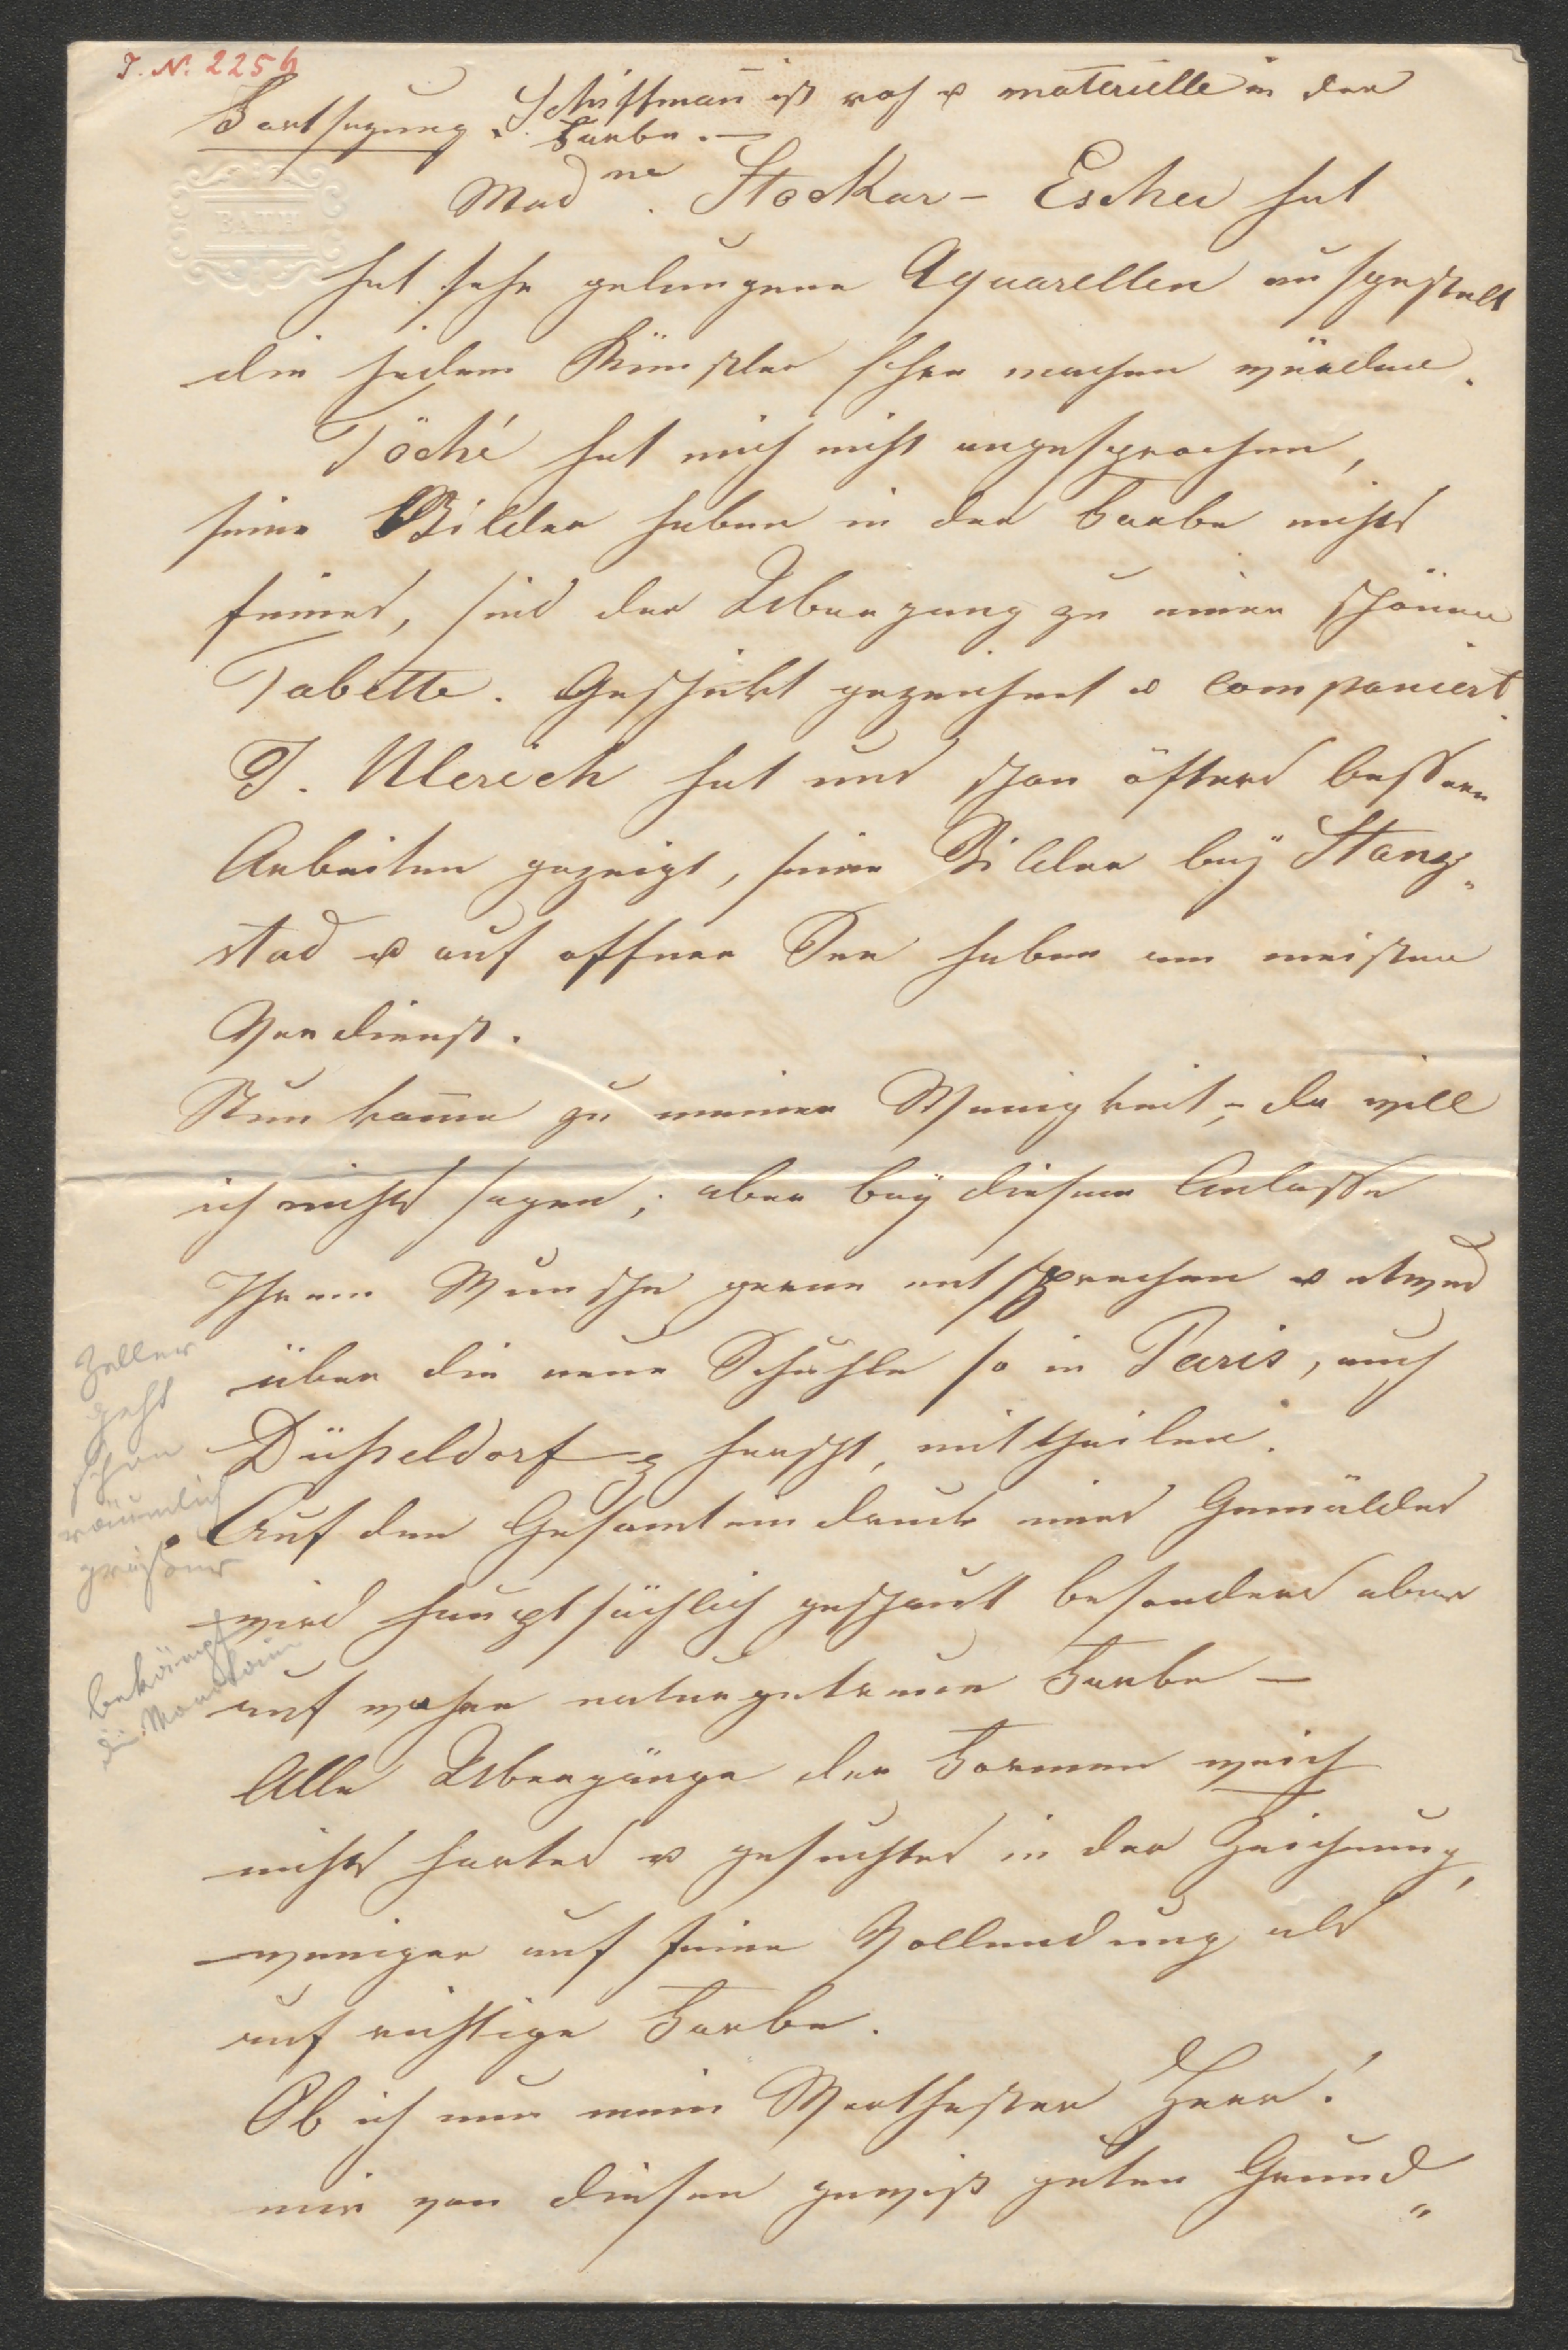 J. N. 2256
Fortsezung. Schiffman̄ ist roh u materielle in der
Farbe. —
BATH
Madme. Stockar - Escher hat
hat sehr gelungene Aquarellen ausgestelt
die jedem Künstler Ehre machen würden.
Töché hat mich nicht angesprochen,
seine Bilder haben in der Farbe nichts
feines, sind der Übergang zu einer schönen
Tabette. Geschikt gezeichnet u componiert.
J. Ulerich hat uns schon öfters bessere
Arbeiten gezeigt, seine Bilder beÿ Stanz„
stad u auf offner See haben am meisten
Verdienst.
Nun kom̄e zu meiner Wenigkeit, – da will
ich nichts sagen; aber beÿ diesem Anlasse
Ihrem Wunsche gerne entsprechen u etwas
über die neue Schuhle so in Paris, auch
Düßeldorf herscht, mittheilen.
Auf den Gesamteindruck eines Gemäldes
wird hauptsächlich geschaut besonders aber
auf wahre naturgetreue Farbe —
Alle Übergänge der Formen weich
nichts hartes u gesuchtes in der Zeichnung,
weniger auf feine Vollendung als
auf richtige Farbe.
Ob ich nun mein Werthester Herr!
mir von diesen gewiß guten Grund„
Zeller
geht
schon
räumlich
größer
bekämpft
die